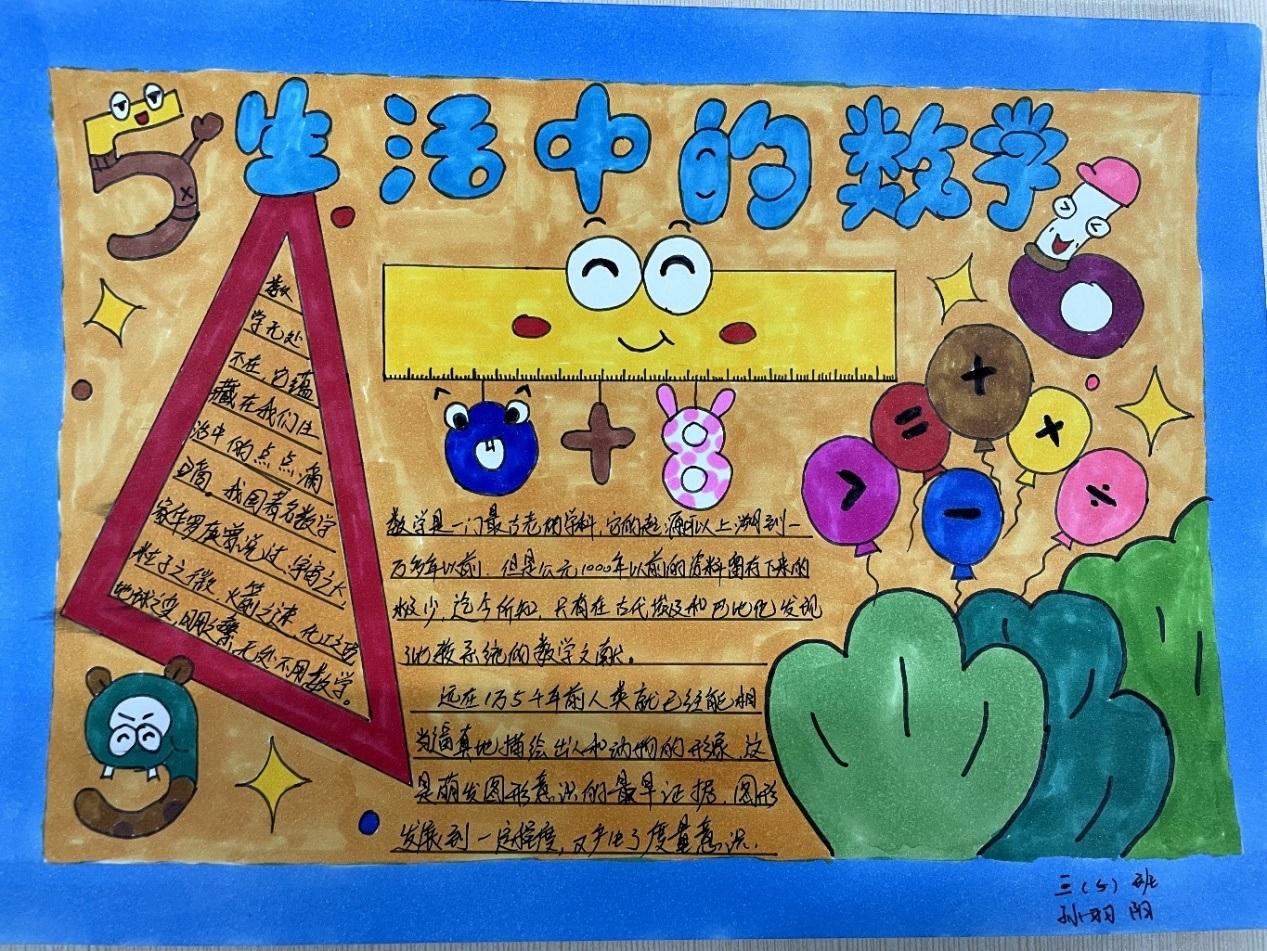 生活中的数学
数
学无处
不在，它蕴
藏在我们生
活中的点点滴
滴。我国著名数学
家华罗庚曾说过，宇宙之大，
粒子之微，火箭之速，化工之巧，
地球之变，日用之繁，无处不用数学。
0+8
数学是一门最古老的学科，它的起源可以上溯到一
万多年以前．但是公元1000年以前的资料留存下来的
极少，迄今所知，只有在古代埃及和巴比伦发现
了比较系统的数学文献。
远在1万5千年前人类就已经能相
当逼真地描绘出人和动物的形象，这
是萌发图形意识的最早证据．图形
发展到一定程度，又产生了度量意识．
+
=
×
>
−
÷
5
6
9
三（5）班
孙羽阳